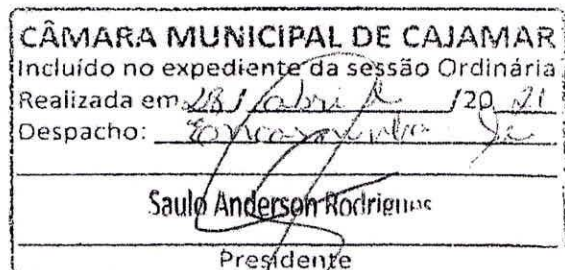 CÂMARA MUNICIPAL DE CAJAMAR
Incluído no expediente da sessão Ordinária
Realizada em 28 / abril /20 21
Despacho: Encaminha-se
Saulo Anderson Rodrigues
Presidente